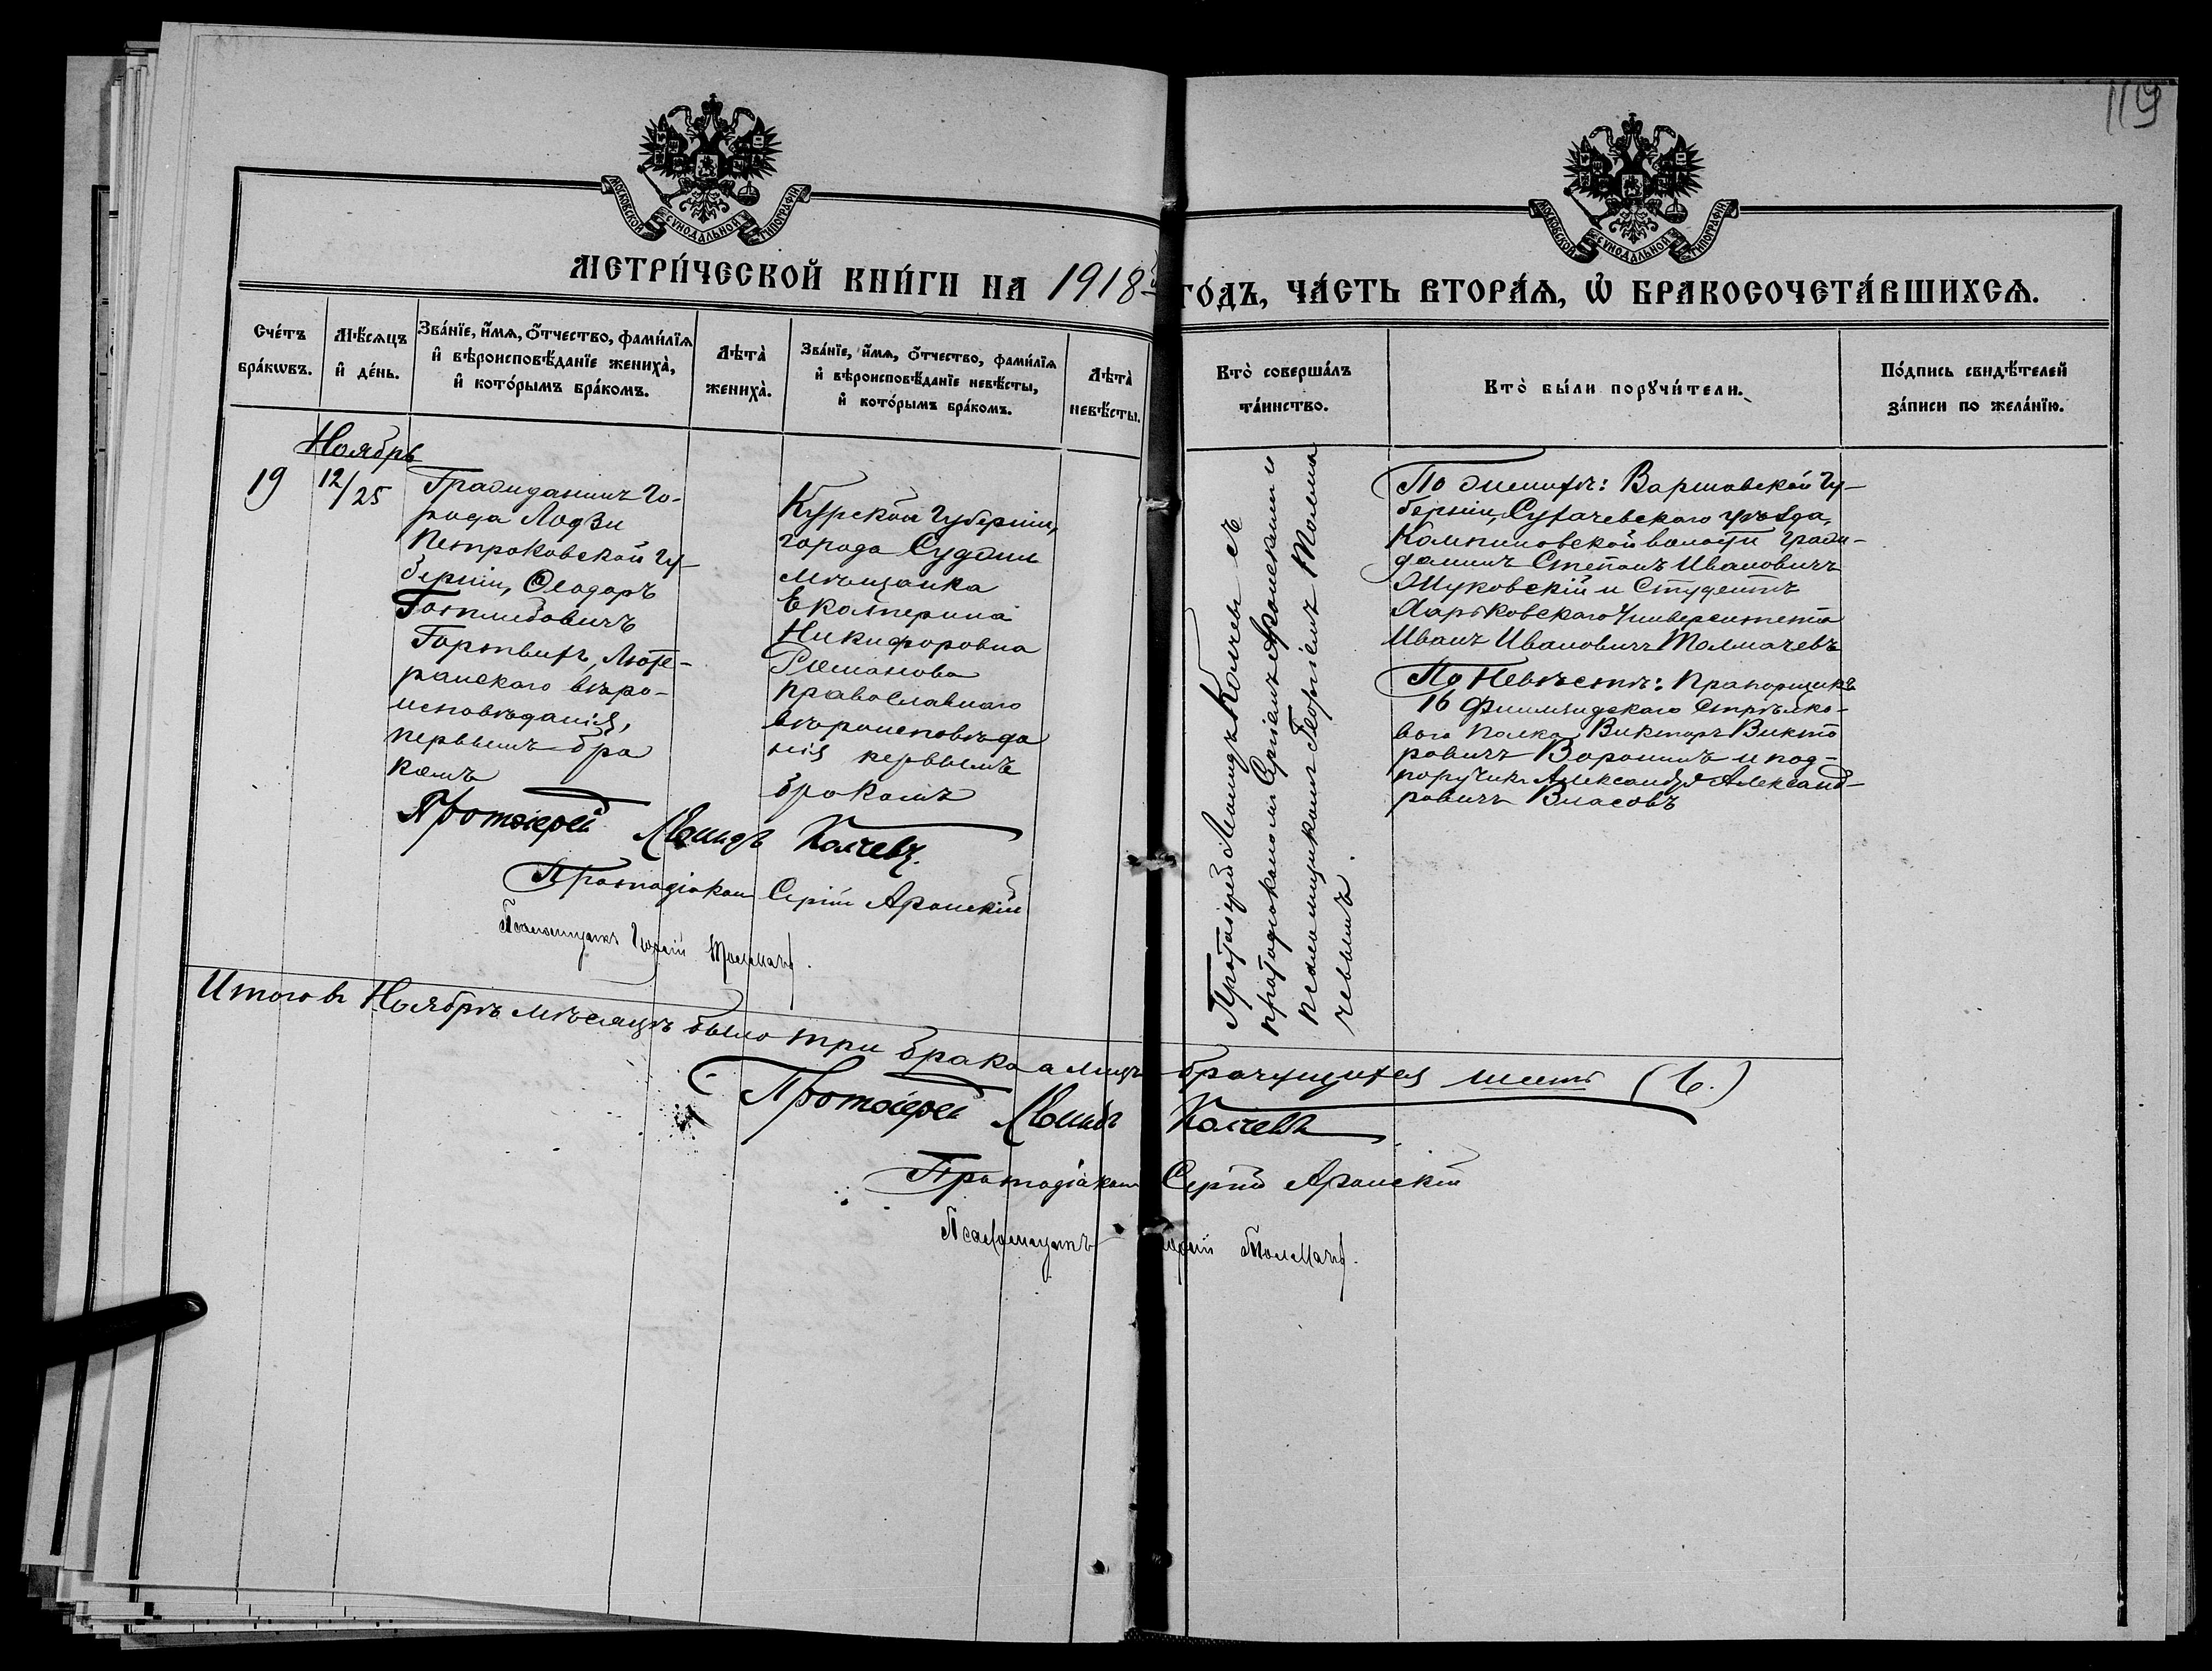 119
МОСКОВСКОЙ СѴНОДАЛЬНОЙ ТИПОГРАФІИ
МОСКОВСКОЙ СѴНОДАЛЬНОЙ ТИПОГРАФІИ
МЕТРИ́ЧЕСКОЙ КНИ́ГИ НА 1918й ГО́ДЪ, ЧА́СТЬ ВТОРА́Ѧ, Ѽ БРАКОСОЧЕТА́ВШИХСѦ.
Сче́тъ
бра́кѡвъ.
Мѣ́сѧцъ
и҆ де́нь.
Зва́нїе, и҆́мѧ, ѻ҆́тчество, фами́лїѧ
и҆ вѣроисповѣ́данїе жениха̀,
и҆ кото́рымъ бра́комъ.
Лѣта̀
жениха̀.
Зва́нїе, и҆́мѧ, ѻ҆́тчество, фами́лїѧ
и҆ вѣроисповѣ́данїе невѣ́сты,
и҆ кото́рымъ бра́комъ.
Лѣта̀
невѣ́сты.
Кто̀ соверша́лъ
та́инство.
Кто̀ бы́ли порꙋчи́тели.
По́дпись свидѣ́телей
за́писи по жела́нїю.
Ноябрь
19
12/25
Гражданинъ го-
рода Лодзи
Петроковской гу-
берніи, Ѳеодоръ
Готлибовичъ
Гартвихъ, Люте-
ранскаго вѣро-
исповѣданія,
первымъ бра
комъ
Курской губерніи,
города Суджи
мѣщанка
Екатерина
Никифоровна
Романова
православнаго
вѣроисповѣда
нія первымъ
бракомъ
Протоіерей Леонидъ Колчевъ съ
протодіакономъ Сергіемъ Аронскимъ и
псаломщикомъ Георгіемъ Толма
чевымъ.
По жениху: Варшавской Гу-
берніи, Сухачевскаго уѣзда,
Кампиновской волости гражд-
данинъ Степанъ Ивановичъ
Жуковскій и Студентъ
Харьковскаго Университета
Иванъ Ивановичъ Толмачевъ
По Невѣстѣ: Прапорщикъ
16 Финляндскаго Стрѣлко-
ваго полка Викторъ Викто
ровичъ Воронинъ и под-
поручикъ Александръ Александ-
ровичъ Власовъ
Протоіерей Леонидъ Колчевъ.
Протодіаконъ Сергій Аронскій
Псаломщикъ Георгій Толмачевъ.
Итого въ Ноябрѣ мѣсяцѣ было три брака а лицъ брачущихся шесть (6.)
Протоіерей Леонидъ Колчевъ
Протодіаконъ Сергій Аронскій
Псаломщикъ Георгій Толмачевъ.